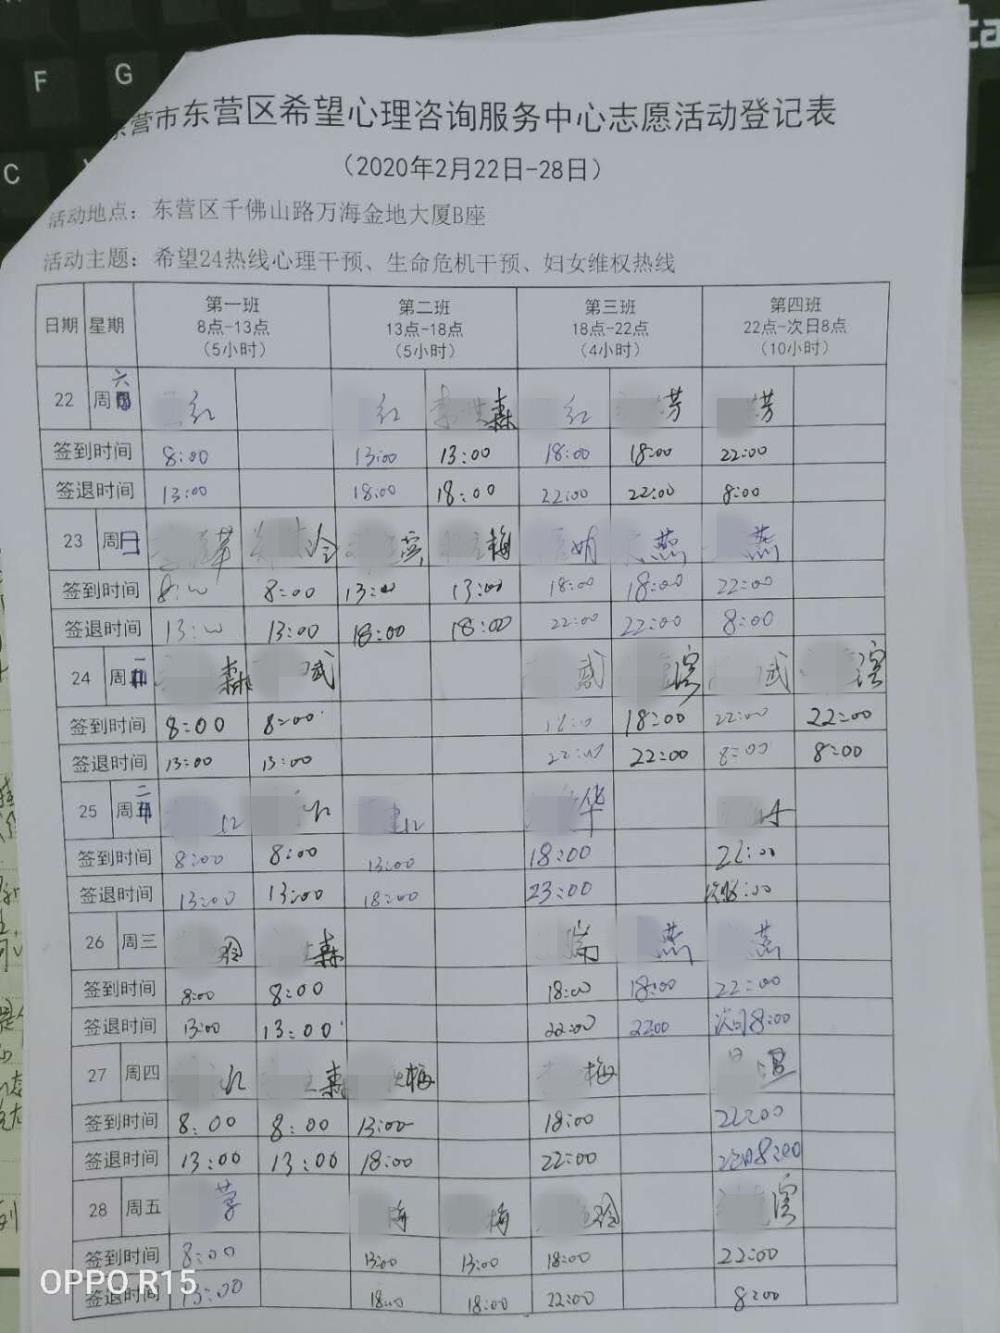 F
G
C
东营市东营区希望心理咨询服务中心志愿活动登记表
（2020年2月22日-28日）
活动地点：东营区千佛山路万海金地大厦B座
活动主题：希望24热线心理干预、生命危机干预、妇女维权热线
日期 星期 第一班 8点-13点 （5小时） 第二班 13点-18点 （5小时） 第三班 18点-22点 （4小时） 第四班 22点-次日8点 （10小时）
22 周六 红 红 森 红 芳 芳
签到时间 8:00 13:00 13:00 18:00 18:00 22:00
签退时间 13:00 18:00 18:00 22:00 22:00 8:00
23 周日 玲 滨 梅 娟 燕 燕
签到时间 8:00 8:00 13:00 13:00 18:00 18:00 22:00
签退时间 13:00 13:00 18:00 18:00 22:00 22:00 8:00
24 周一 森 武 武 滨 武 滨
签到时间 8:00 8:00 18:00 18:00 22:00 22:00
签退时间 13:00 13:00 22:00 22:00 8:00 8:00
25 周二 红 红 华
签到时间 8:00 8:00 13:00 18:00 22:00
签退时间 13:00 13:00 18:00 23:00
26 周三 玲 森 瑞 燕 燕
签到时间 8:00 8:00 18:00 18:00 22:00
签退时间 13:00 13:00 22:00 22:00 次日8:00
27 周四 红 森 梅 梅
签到时间 8:00 8:00 13:00 18:00 22:00
签退时间 13:00 13:00 18:00 22:00 次日8:00
28 周五 梅 梅 玲 滨
签到时间 8:00 13:00 13:00 18:00 22:00
签退时间 13:00 18:00 18:00 22:00 8:00
OPPO R15